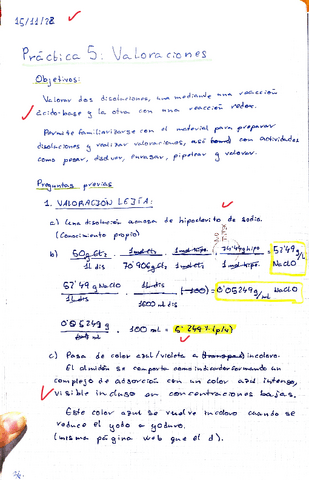 15/11/22
Práctica 5: Valoraciones
Objetivos:
Valorar dos disoluciones, una mediante una reacción
ácido-base y la otra con una reacción redox.
Permite familiarizarse con el material para preparar
disoluciones y realizar valoraciones, así con actividades
como pesar, disolver, enrasar, pipetear y valorar.
Preguntas previas
1. VALORACIÓN LEJÍA:
a) Una disolución acuosa de hipoclorito de sodio.
(Conocimiento propio)
b) 50g Cl2 / 1L dis · 1mol Cl2 / 70'906g Cl2 · 1mol hipo / 1mol Cl2 · 74'44g hipo / 1mol hipo = 52'49 g/L NaClO
52'49 g NaClO / 1L dis · 1L dis / 1000 ml dis (·100) = 0'05249 g/ml NaClO
0'05249g / 1 ml · 100 ml = 5'249 % (p/v)
c) Pasa de color azul/violeta a incoloro.
El almidón se comporta como indicador formando un
complejo de adsorción con un color azul intenso,
visible incluso en concentraciones bajas.
Este color azul se vuelve incoloro cuando se
reduce el yodo a yoduro.
(misma página web que el d).